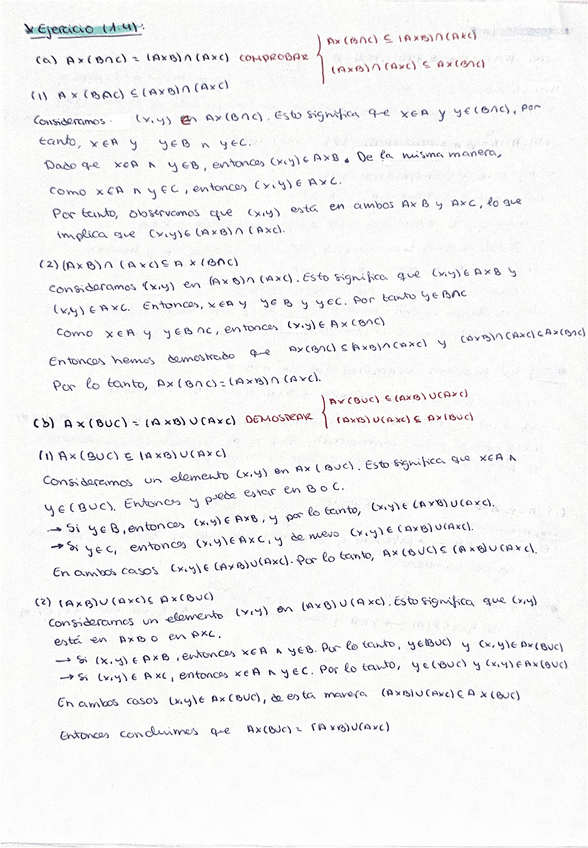 * Ejercicio (1.4):
(a) A×(B∩C) = (A×B)∩(A×C) COMPROBAR { A×(B∩C) ⊆ (A×B)∩(A×C)
(A×B)∩(A×C) ⊆ A×(B∩C)
(1) A×(B∩C) ⊆ (A×B)∩(A×C)
Consideramos (x,y) en A×(B∩C). Esto significa que x∈A y y∈(B∩C), por
tanto, x∈A y y∈B ∧ y∈C.
Dado que x∈A ∧ y∈B, entonces (x,y)∈A×B. De la misma manera,
como x∈A ∧ y∈C, entonces (x,y)∈ A×C.
Por tanto, observamos que (x,y) está en ambos A×B y A×C, lo que
implica que (x,y)∈(A×B)∩(A×C).
(2) (A×B)∩(A×C)⊆ A×(B∩C)
consideramos (x,y) en (A×B)∩(A×C). Esto significa que (x,y)∈A×B y
(x,y)∈A×C. Entonces, x∈A y y∈B y y∈C. Por tanto y∈B∩C
Como x∈A y y∈B∩C, entonces (x,y)∈ A×(B∩C)
Entonces hemos demostrado que A×(B∩C)⊆(A×B)∩(A×C) y (A×B)∩(A×C)⊆A×(B∩C)
Por lo tanto, A×(B∩C)=(A×B)∩(A×C).
(b) A×(B∪C) = (A×B)∪(A×C) DEMOSTRAR { A×(B∪C) ⊆ (A×B)∪(A×C)
(A×B)∪(A×C) ⊆ A×(B∪C)
(1) A×(B∪C) ⊆ (A×B)∪(A×C)
Consideramos un elemento (x,y) en A×(B∪C). Esto significa que x∈A ∧
y∈(B∪C). Entonces y puede estar en B o C.
→ Si y∈B, entonces (x,y)∈A×B, y por lo tanto, (x,y)∈(A×B)∪(A×C).
→ Si y∈C, entonces (x,y)∈A×C, y de nuevo (x,y)∈(A×B)∪(A×C).
En ambos casos (x,y)∈(A×B)∪(A×C). Por lo tanto, A×(B∪C)⊆(A×B)∪(A×C).
(2) (A×B)∪(A×C)⊆ A×(B∪C)
consideramos un elemento (x,y) en (A×B)∪(A×C). Esto significa que (x,y)
está en A×B o en A×C.
→ Si (x,y)∈A×B, entonces x∈A ∧ y∈B. Por lo tanto, y∈(B∪C) y (x,y)∈A×(B∪C)
→ Si (x,y)∈A×C, entonces x∈A ∧ y∈C. Por lo tanto, y∈(B∪C) y (x,y)∈A×(B∪C)
En ambos casos (x,y)∈ A×(B∪C), de esta manera (A×B)∪(A×C)⊆ A×(B∪C)
Entonces concluimos que A×(B∪C)=(A×B)∪(A×C)